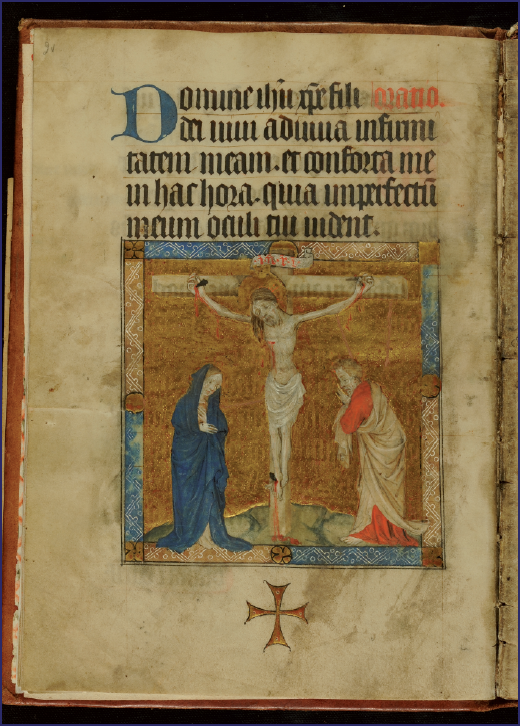 Domine ihū xp̄e fili oratio.
dei uiui adiuua infirmi
tatem meam. et conforta me
in hac hora. quia imperfectū
meum oculi tui uident.